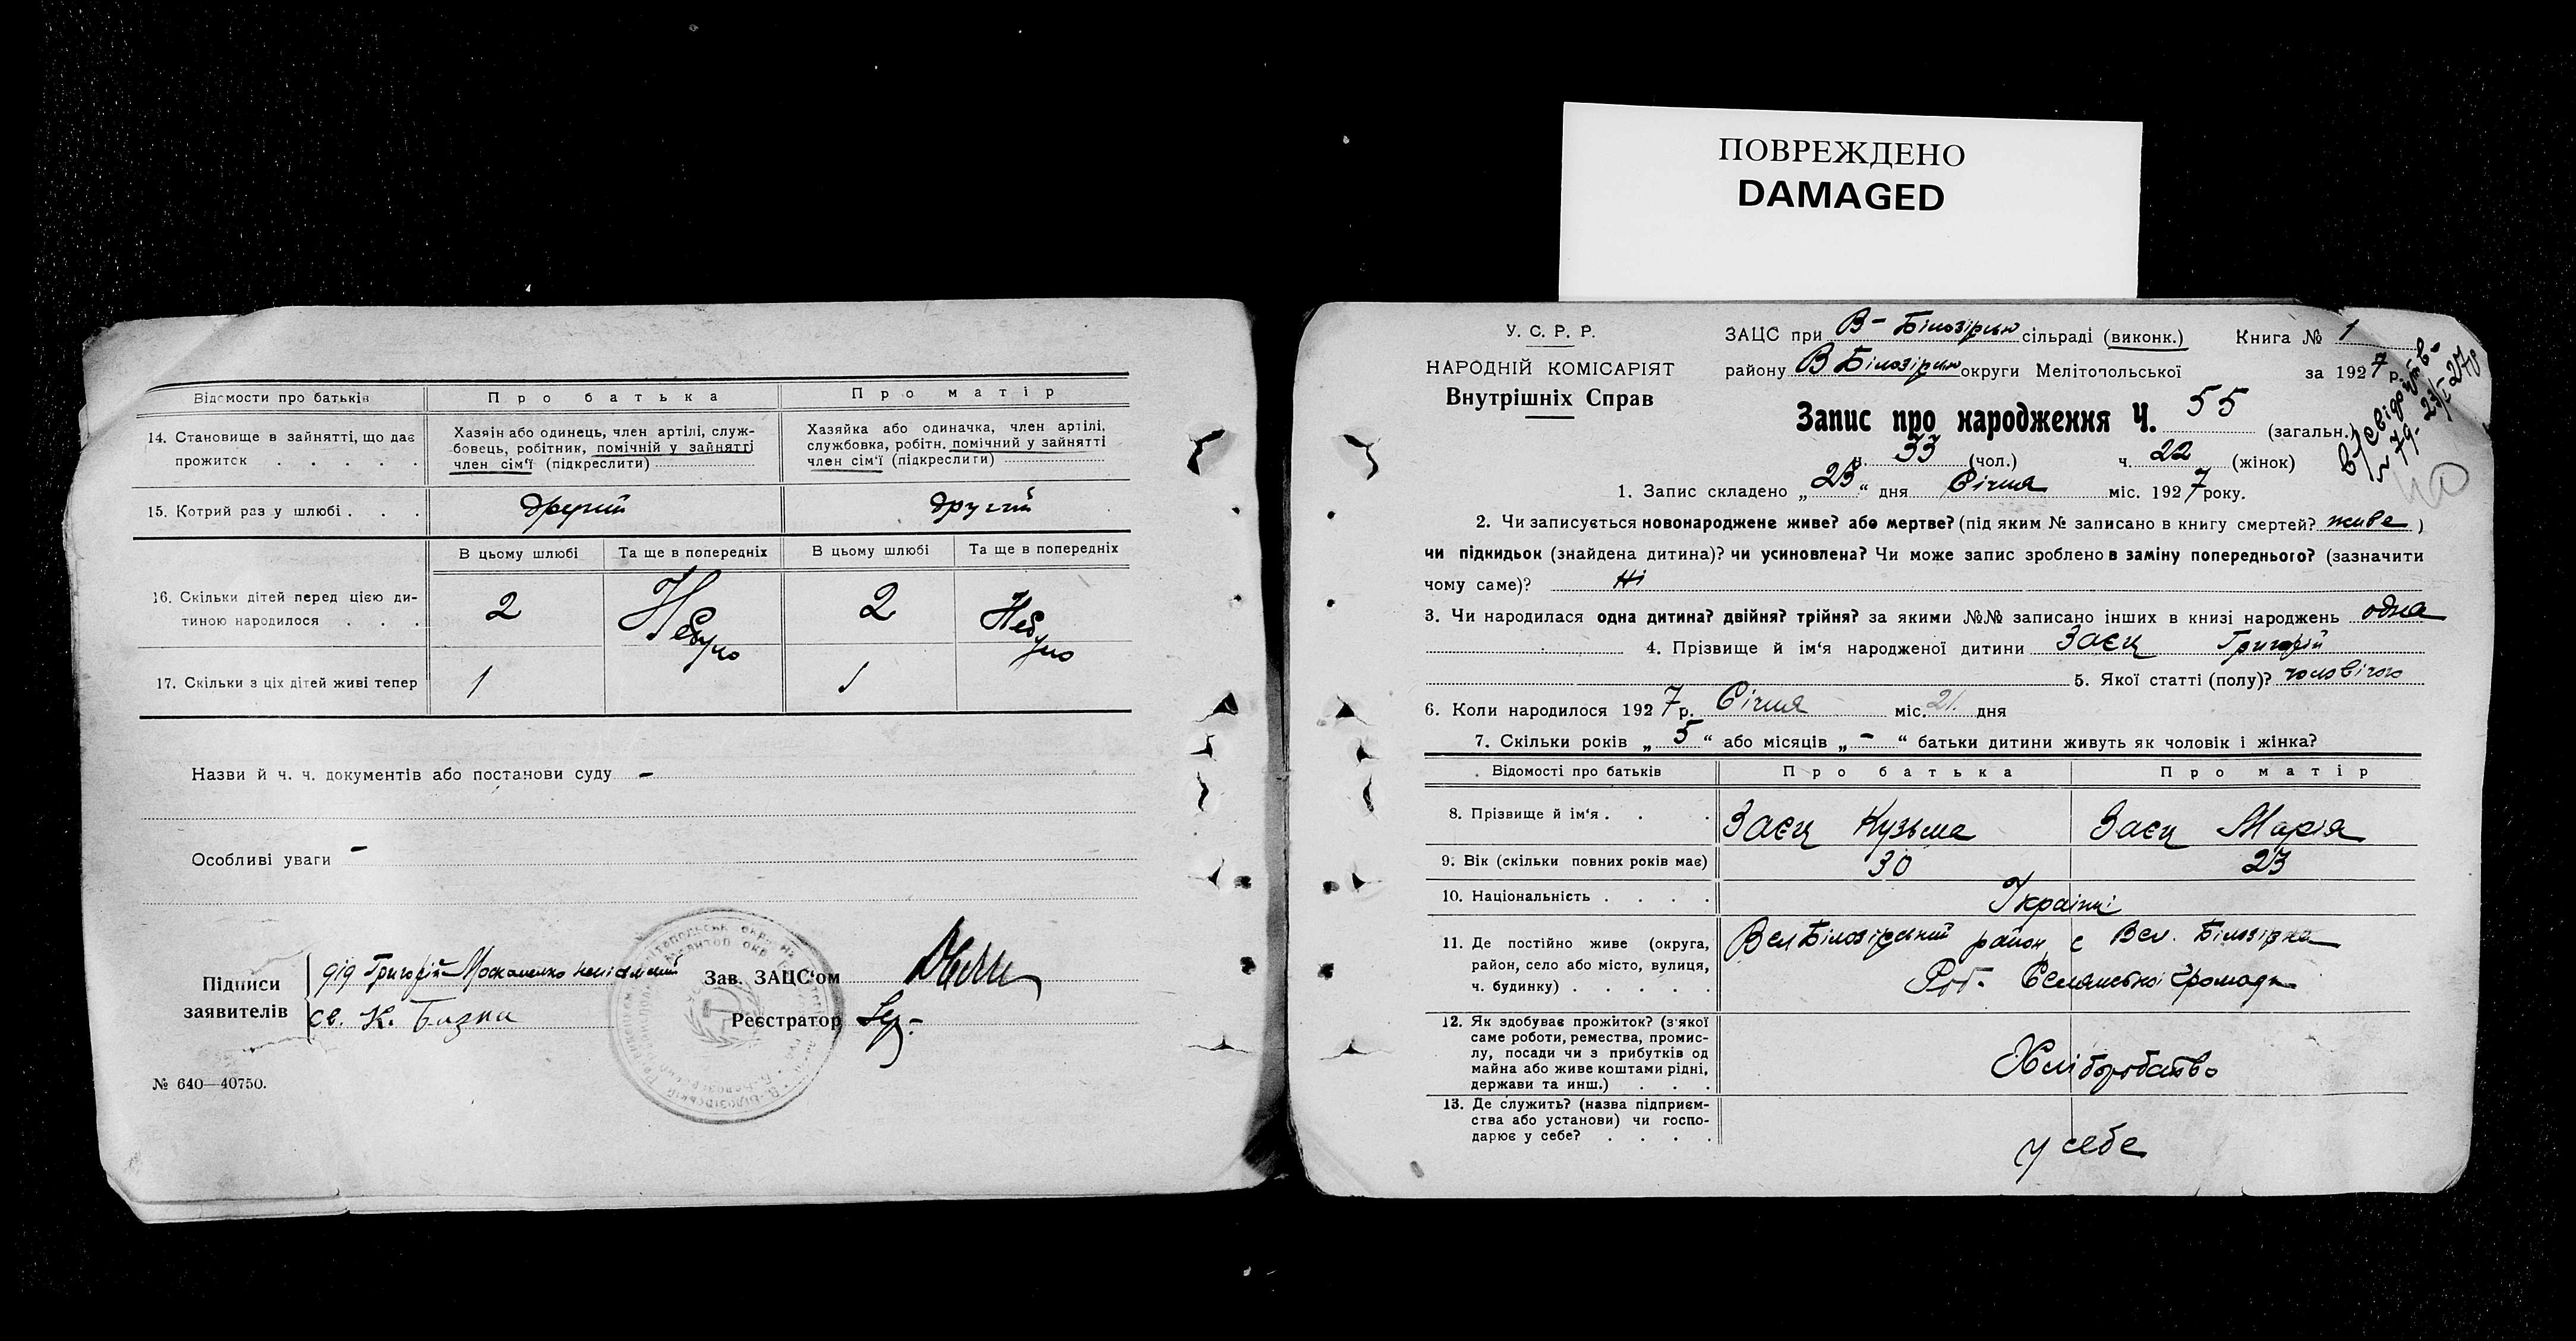 ПОВРЕЖДЕНО
DAMAGED
Відомости про батьків
Про батька
Про матір
14. Становище в зайнятті, що дає прожиток . . . . .
Хазяін або одинець, член артілі, служ-
бовець, робітник, помічній у зайнятті
член сім'ї (підкреслити)
Хазяйка або одиначка, член артілі,
службовка, робітн. помічний у зайнятті
член сім'ї (підкреслити)
15. Котрий раз у шлюбі . . .
другий
другий
В цьому шлюбі
Та ще в попередніх
В цьому шлюбі
Та ще в попередніх
16. Скільки дітей перед цією ди-
тиною народилося . . .
2
Небуло
2
Небуло
17. Скільки з ціх дітей живі тепер
1
1
Назви й ч. ч. документів або постанови суду –
Особливі уваги –
Підписи
заявителів
дід Григорій Москаленко
св. К.
Зав. ЗАЦС'ом
Реєстратор
№ 640—40750.
У. С. Р. Р.
НАРОДНІЙ КОМІСАРІЯТ
Внутрішніх Справ
ЗАЦС при В-Білозірськ сільраді (виконк.) Книга № 1
району В Білозірськ округи Мелітопольської за 1927 р.
Запис про народження Ч. 55 (загальн.)
ч. 33 (чол.) ч. 22 (жінок)
1. Запис складено „23“ дня Січня міс. 1927 року.
2. Чи записується новонароджене живе? або мертве? (під яким № записано в книгу смертей? живе )
чи підкидьок (знайдена дитина)? чи усиновлена? Чи може запис зроблено в заміну попереднього? (зазначити
чому саме)? Ні
3. Чи народилася одна дитина? двійня? трійня? за якими №№ записано інших в книзі народжень одна
4. Прізвище й ім'я народженої дитини Заєц Григорій
5. Якої статті (полу)? чоловічого
6. Коли народилося 1927 р. Січня міс. 21. дня
7. Скільки років „5“ або місяців „–“ батьки дитини живуть як чоловік і жінка?
Відомості про батьків
Про батька
Про матір
8. Прізвище й ім'я . . .
Заєц Кузьма
Заєц Марія
9. Вік (скільки повних років має)
30
23
10. Національність . . . .
Україньці
11. Де постійно живе (округа,
район, село або місто, вулиця,
ч. будинку) . . . . .
Вел Білозірський район с Вел. Білозірка
Селянської Громади
12. Як здобуває прожиток? (з'якої
саме роботи, ремества, промис-
лу, посади чи з прибутків од
майна або живе коштами рідні,
держави та инш.) . . .
Хліборобство
13. Де служить? (назва підприєм-
ства або установи) чи госпо-
дарює у себе? . . . .
у себе